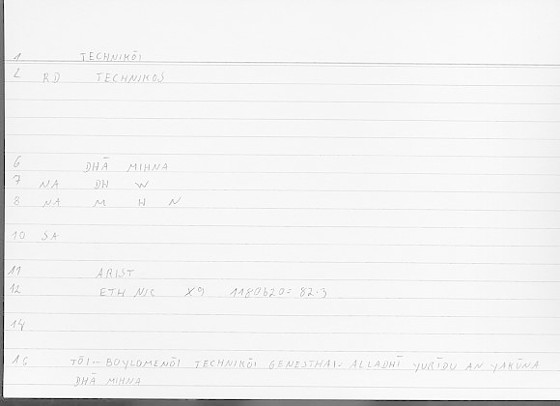 1 TECHNIKŌI
2 RD TECHNIKOS
6 DHĀ MIHNA
7 NA DH W
8 NA M H N
10 SA
11 ARIST
12 ETH NIC X9 1180b20= 82.3
14
16 TŌI-- BOYLOMENŌI TECHNIKŌI GENESTHAI. ALLADHĪ YURĪDU AN YAKŪNA
DHĀ MIHNA